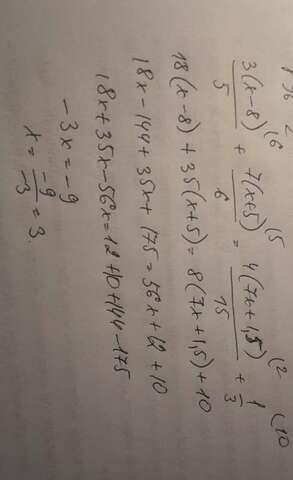 № 2
3(x-8)/5 (6 + 7(x+5)/6 (5 = 4(7x+1,5)/15 (2 + 1/3 (10
18(x-8) + 35(x+5) = 8(7x+1,5) + 10
18x - 144 + 35x + 175 = 56x + 12 + 10
18x + 35x - 56x = 12 + 10 + 144 - 175
-3x = -9
x = -9/-3 = 3.